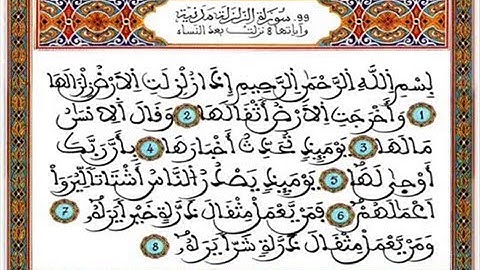 99 سورة الزلزلة مدنية
وآياتها 8 نزلت بعد النساء
بسم الله الرحمن الرحيم إذا زلزلت الأرض زلزالها
1 وأخرجت الأرض أثقالها 2 وقال الإنسان
مالها 3 يومئذ تحدث أخبارها 4 بأن ربك
أوحى لها 5 يومئذ يصدر الناس أشتاتا ليروا
أعمالهم 6 فمن يعمل مثقال ذرة خيرا يره 7
ومن يعمل مثقال ذرة شرا يره 8